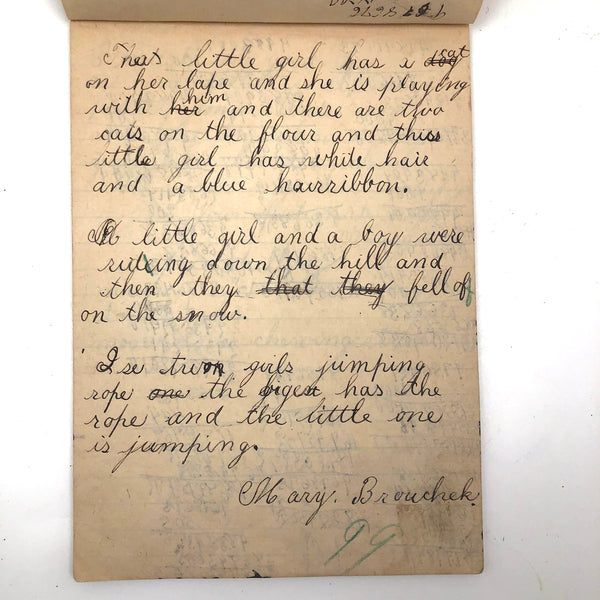 This little girl has a dog cat
on her lape and she is playing
with her him and there are two
cats on the flour and this
little girl has white hair
and a blue hairribbon.
A little girl and a boy were
riding down the hill and
then they that they fell off
on the snow.
I se two girls jumping
rope one the bigest has the
rope and the little one
is jumping.
Mary. Brouchek.
99